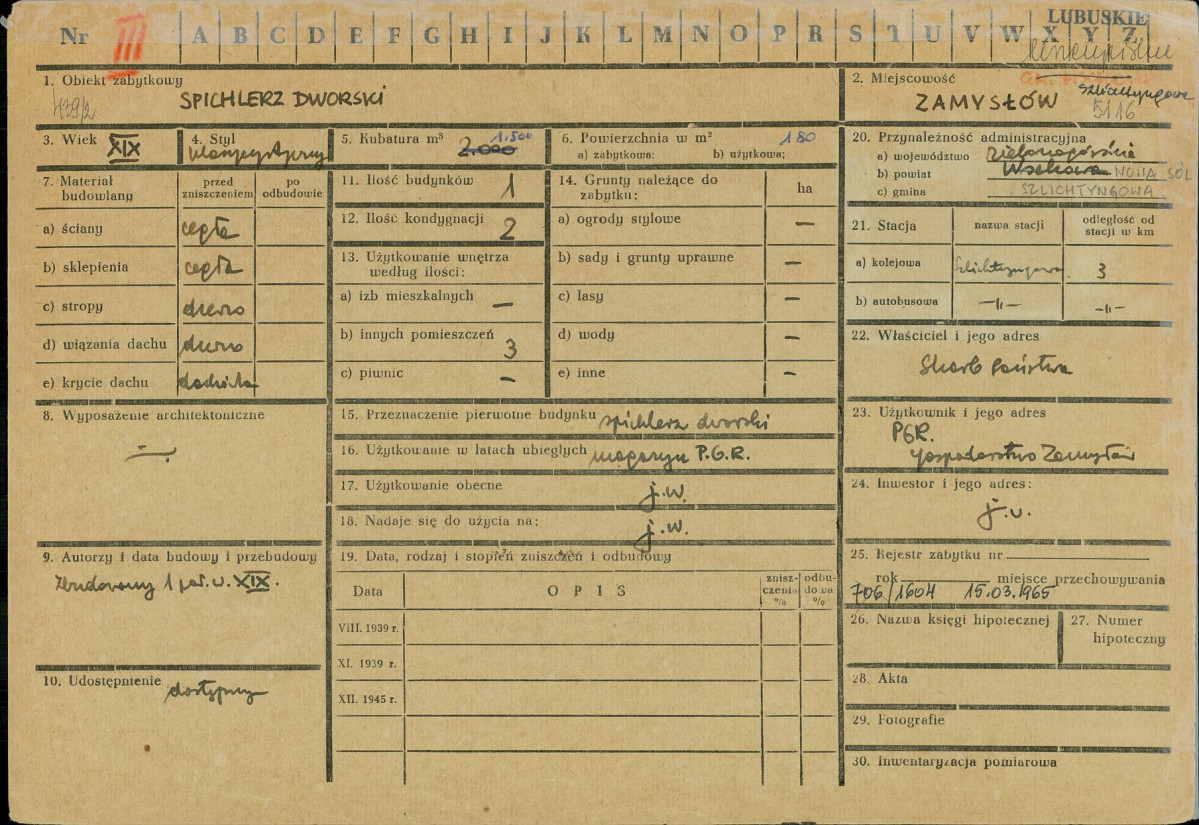 LUBUSKIE
Nr III A B C D E F G H I J K L M N O P R S T U V W X Y Z
1. Obiekt zabytkowy
439/2
SPICHLERZ DWORSKI
2. Miejscowość
Szlichtyngowa
ZAMYSŁÓW 5116
3. Wiek XIX
4. Styl klasycystyczny
5. Kubatura m³ 1.500
2.000
6. Powierzchnia w m² 180
a) zabytkowa: b) użytkowa;
7. Materiał budowlany
przed zniszczeniem
po odbudowie
a) ściany cegła
b) sklepienia cegła
c) stropy drewno
d) wiązania dachu drewno
e) krycie dachu dachówka
8. Wyposażenie architektoniczne
—
9. Autorzy i data budowy i przebudowy
Zbudowany 1 poł. w. XIX.
10. Udostępnienie dostępny
11. Ilość budynków 1
12. Ilość kondygnacji 2
13. Użytkowanie wnętrza
według ilości:
a) izb mieszkalnych —
b) innych pomieszczeń 3
c) piwnic —
14. Grunty należące do
zabytku;
ha
a) ogrody stylowe —
b) sady i grunty uprawne —
c) lasy —
d) wody —
e) inne —
15. Przeznaczenie pierwotne budynku spichlerz dworski
16. Użytkowanie w latach ubiegłych magazyn P.G.R.
17. Użytkowanie obecne j.w.
18. Nadaje się do użycia na; j.w.
19. Data, rodzaj i stopień zniszczeń i odbudowy
Data
OPIS
znisz-
czenia
%
odbu-
dowa
%
VIII. 1939 r.
XI. 1939 r.
XII. 1945 r.
20. Przynależność administracyjna
a) województwo zielonogórskie
b) powiat Wschowa NOWA SÓL
c) gmina SZLICHTYNGOWA
21. Stacja
nazwa stacji
odległość od
stacji w km
a) kolejowa Szlichtyngowa 3
b) autobusowa —"— —"—
22. Właściciel i jego adres
Skarb państwa
23. Użytkownik i jego adres
PGR.
Gospodarstwo Zamysłów
24. Inwestor i jego adres:
j.w.
25. Rejestr zabytku nr
rok miejsce przechowywania
706/1604 15.03.1965
26. Nazwa księgi hipotecznej
27. Numer
hipoteczny
28. Akta
29. Fotografie
30. Inwentaryzacja pomiarowa